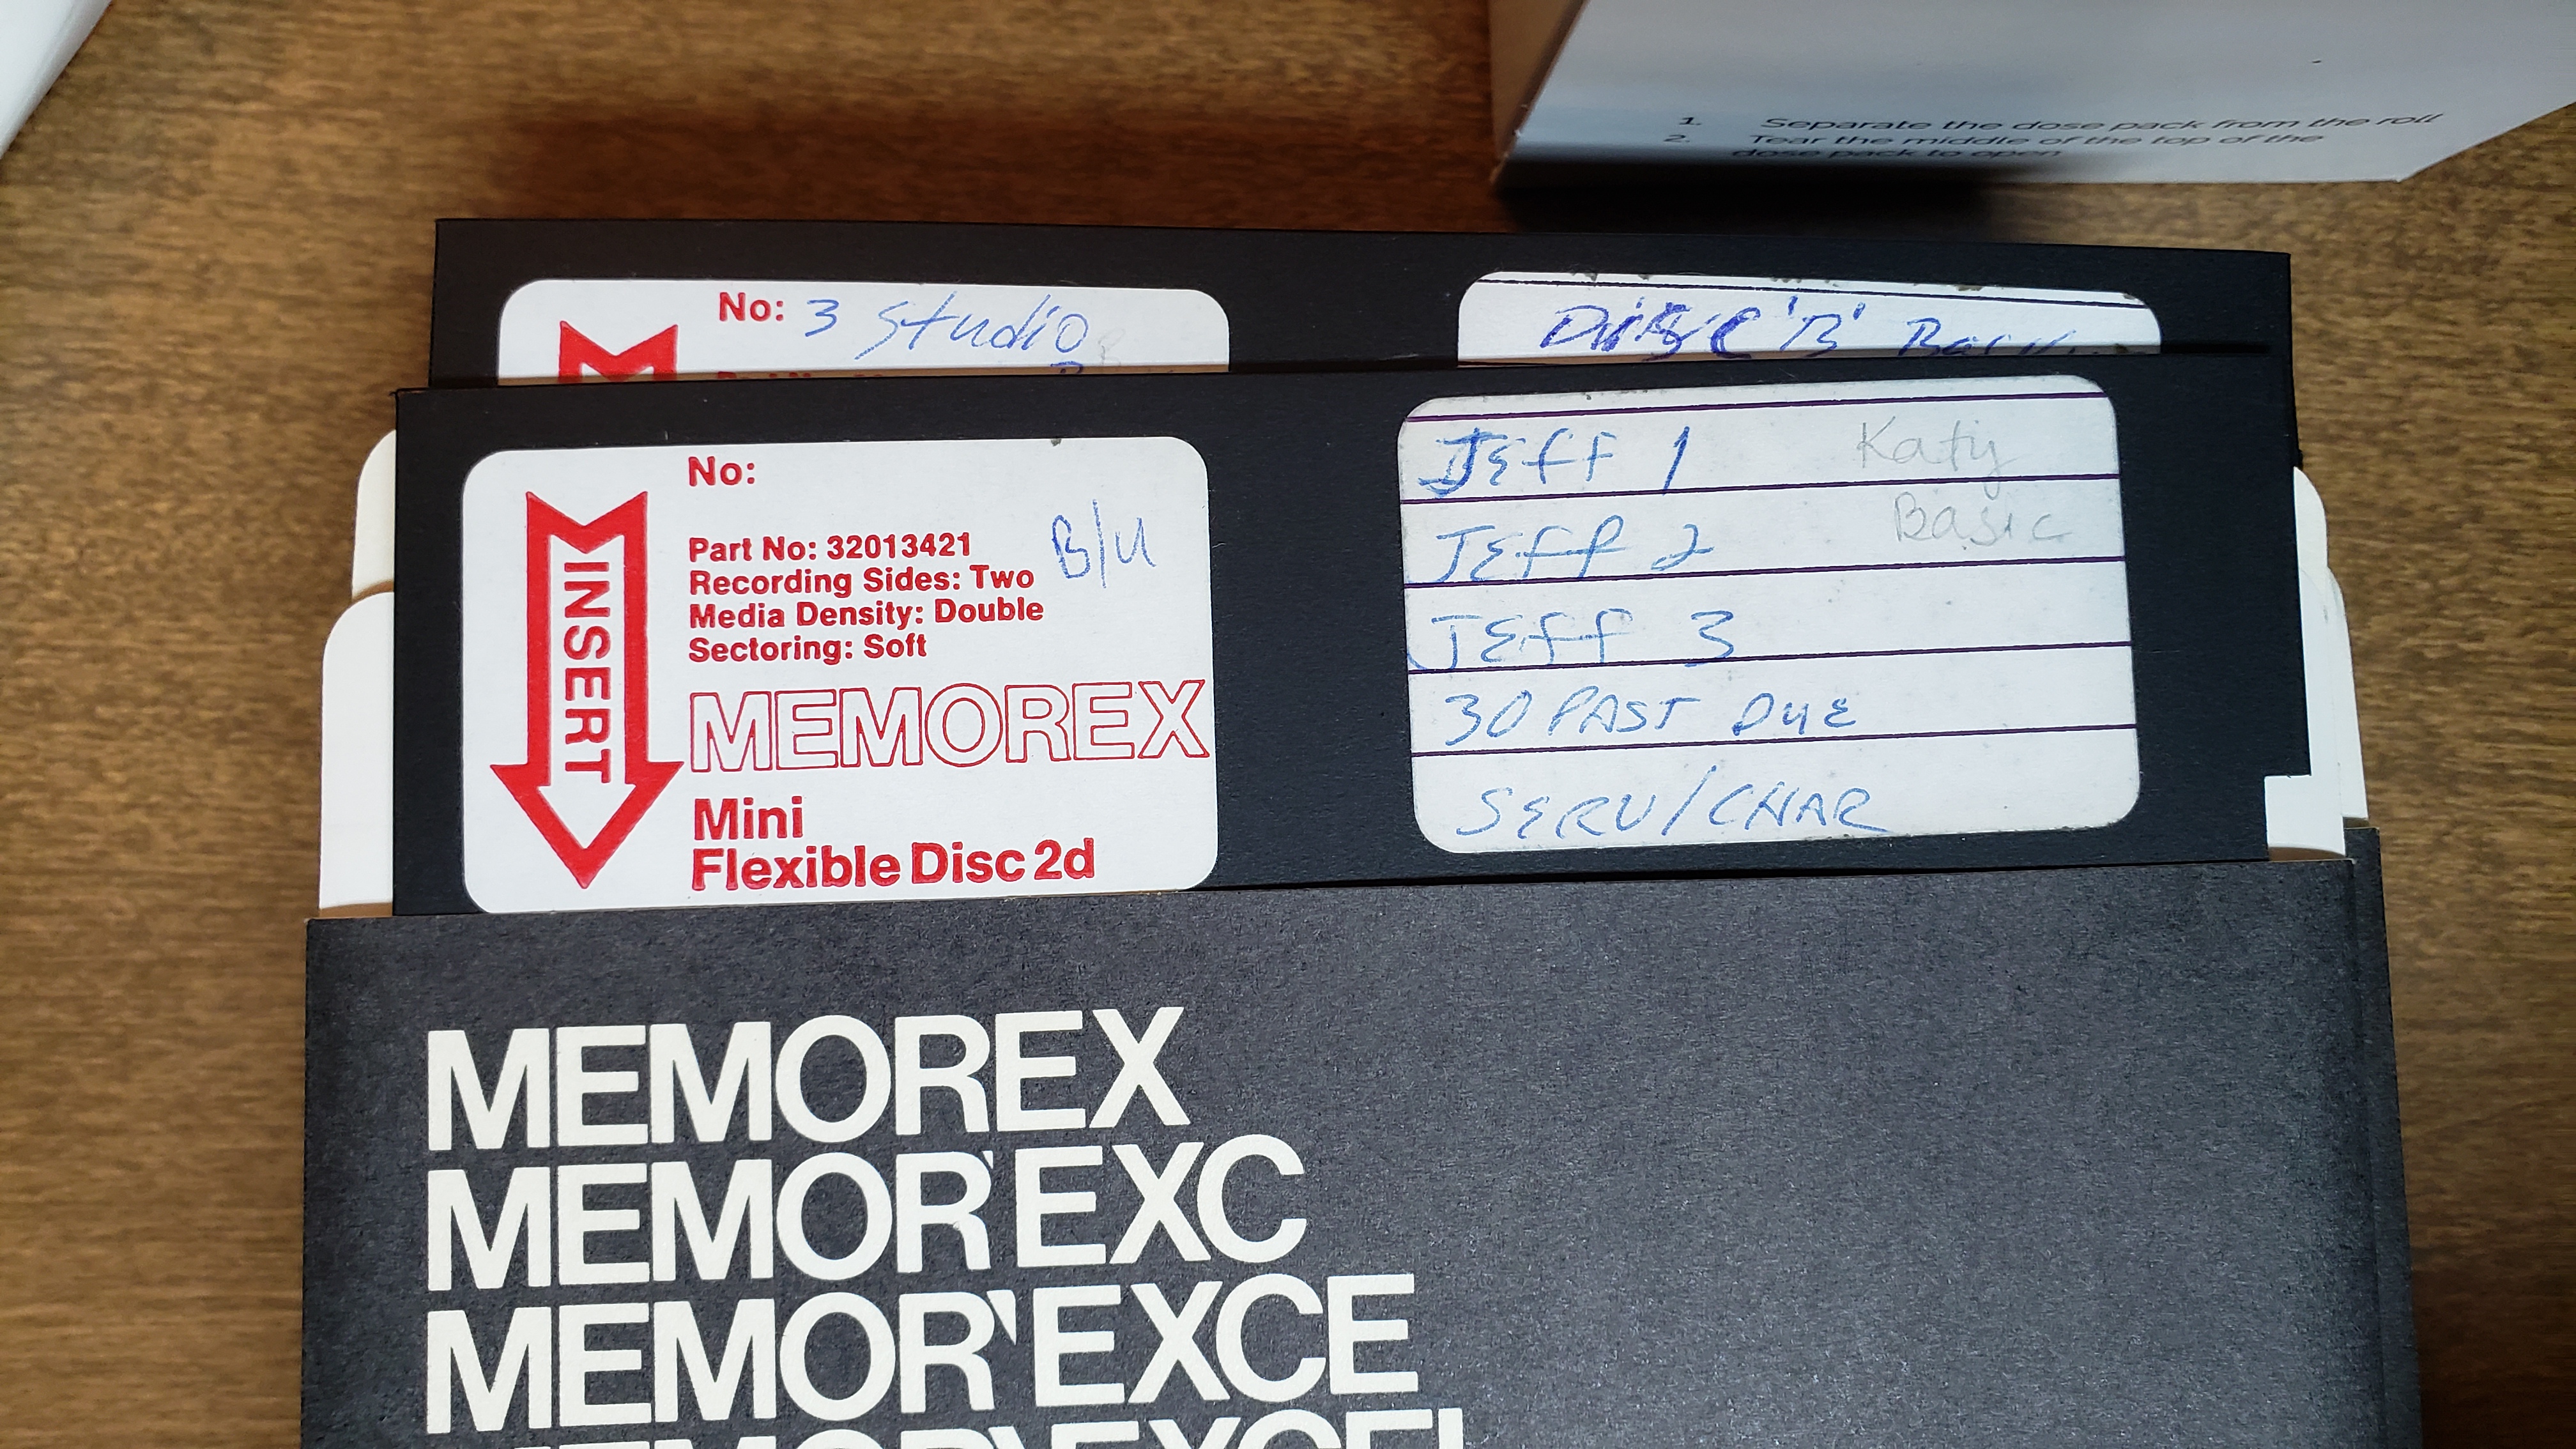 1. Separate the dose pack from the roll
2. Tear the middle of the top of the
dose pack to open
No: 3 Studio
DISC 'B'
No:
Part No: 32013421
Recording Sides: Two
Media Density: Double
Sectoring: Soft
B/U
INSERT
MEMOREX
Mini
Flexible Disc 2d
JEff 1 Katy
JEff 2 Basic
JEff 3
30 PAST DUE
SERV/CHAR
MEMOREX
MEMOR'EXC
MEMOR'EXCE